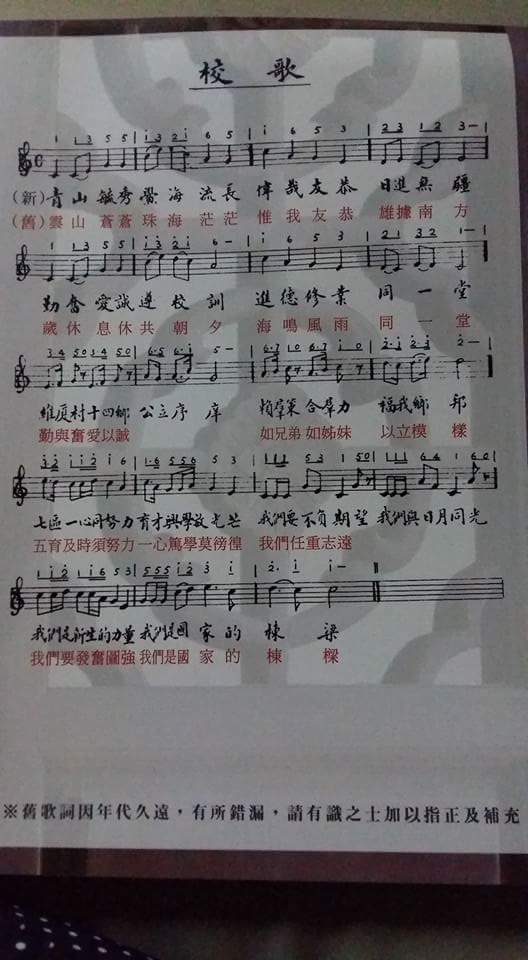 校歌
1 13 5 5 i3 2i 6 5 i 6 5 3 23 13 3—
(新)青山毓秀 黌海流長 偉哉友恭 日進無疆
(舊)雲山蒼蒼 珠海茫茫 惟我友恭 雄據南方
勤奮愛誠遵校訓 進德修業同一堂
歲休息休共朝夕 海鳴風雨同一堂
維廈村十四鄉 公立序庠 賴羣策合羣力 福我鄉邦
勤與奮愛以誠 如兄弟如姊妹 以立模樣
七區一心同努力 育才興學放光芒 我們要不負期望 我們與日月同光
五育及時須努力 一心篤學莫徬徨 我們任重志遠
我們是新生的力量 我們是國家的棟梁
我們要發奮圖強 我們是國家的棟樑
※舊歌詞因年代久遠，有所錯漏，請有識之士加以指正及補充